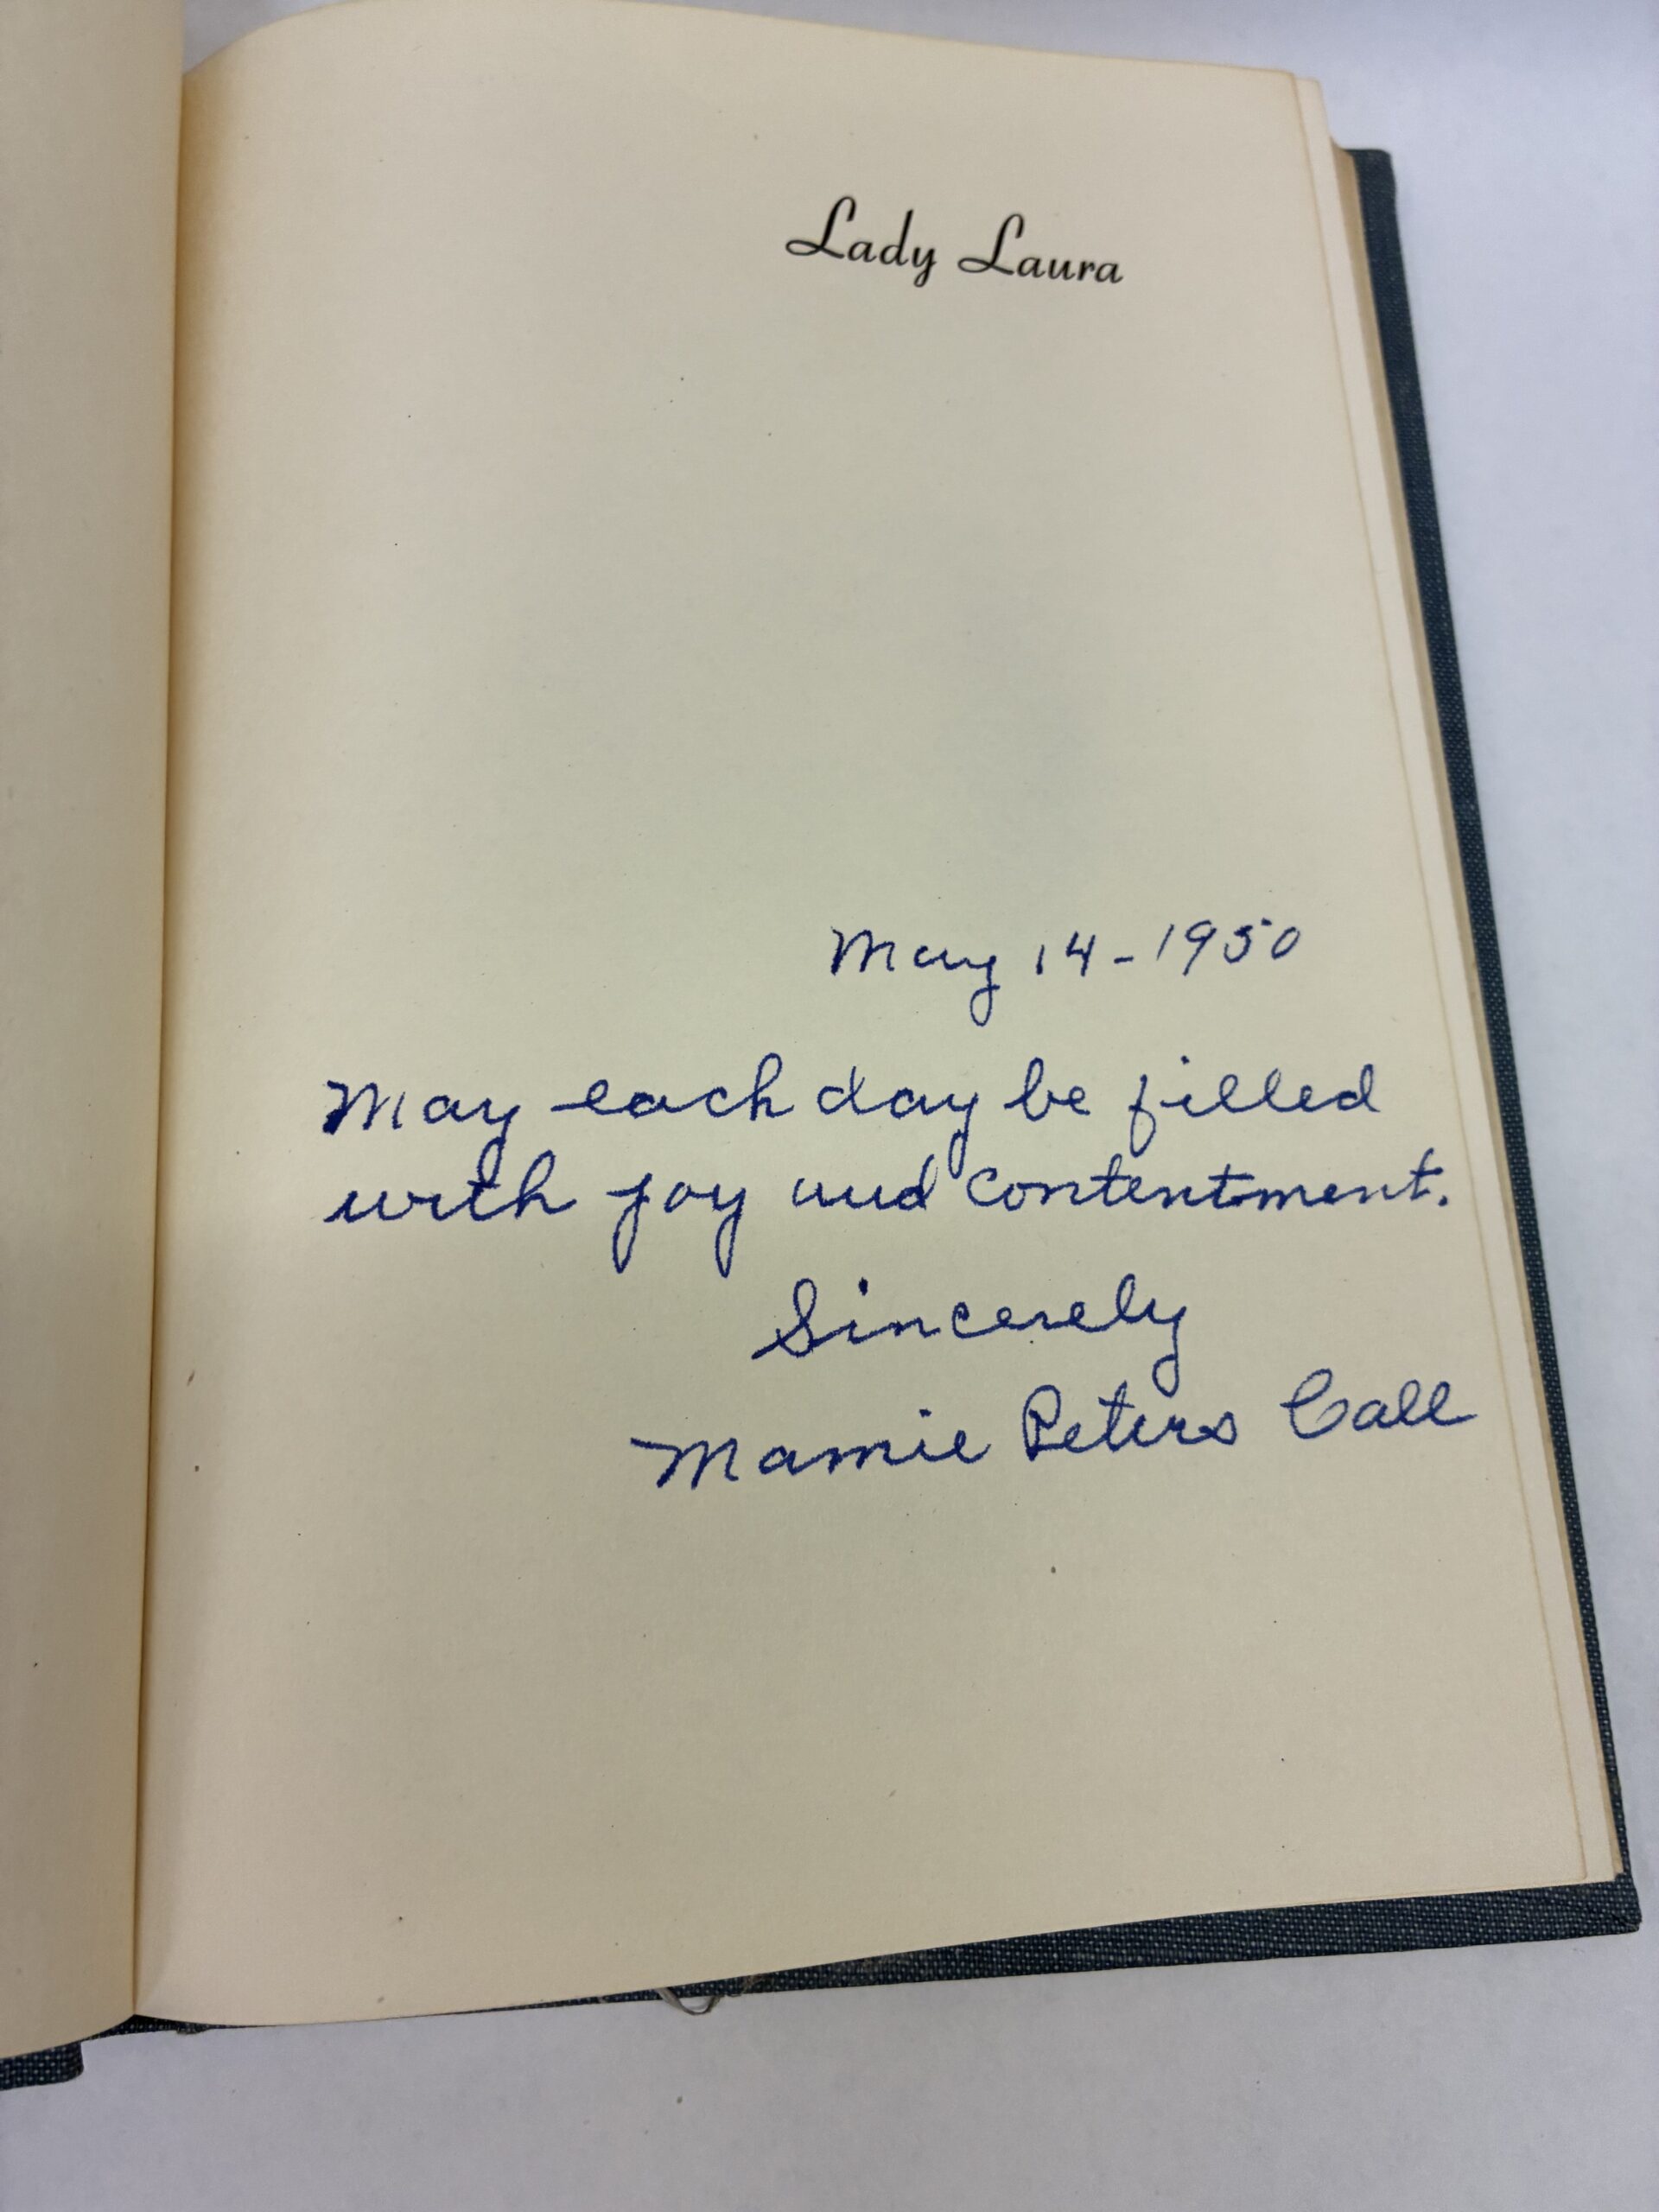 Lady Laura
May 14-1950
May each day be filled
with joy and contentment.
Sincerely
Mamie Peters Call